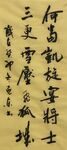 何當凱旋宴將士
三更雪壓飛狐城